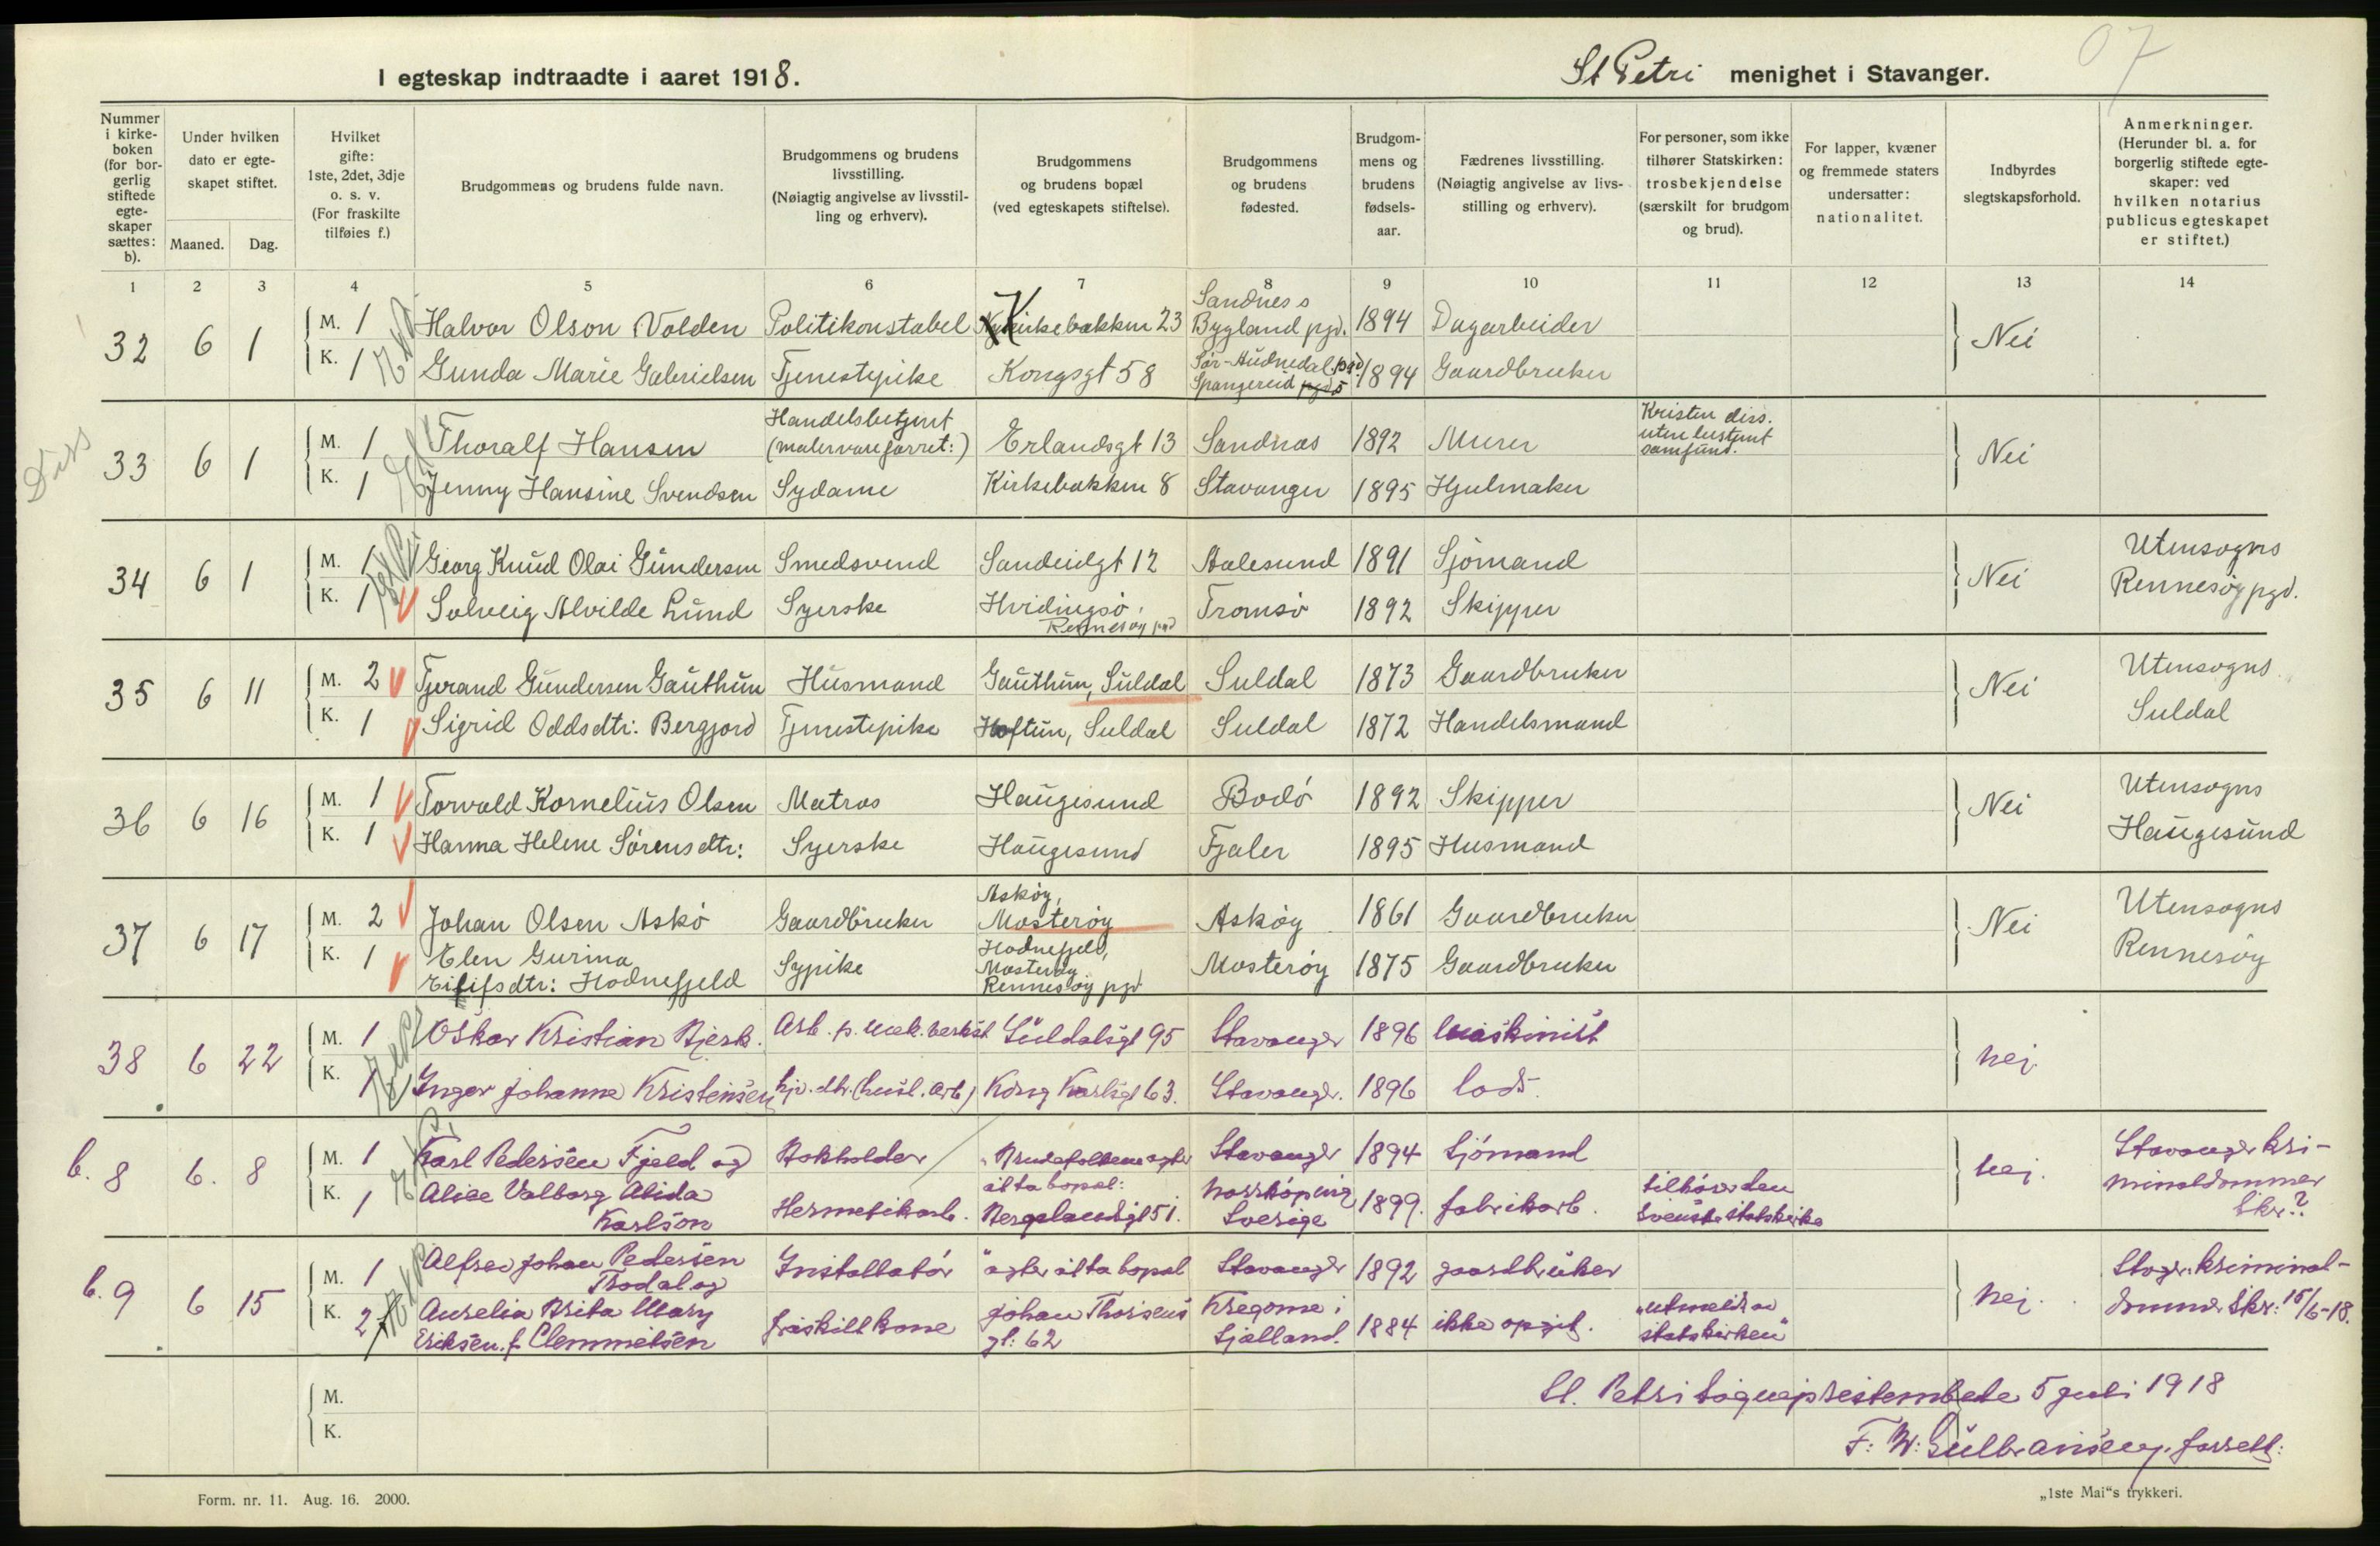 07
I egteskap indtraadte i aaret 1918.
St Petri menighet i Stavanger.
Nummer i kirkeboken (for borgerlig stiftede egteskaper sættes: b).
Under hvilken dato er egteskapet stiftet.
Maaned. Dag.
Hvilket gifte: 1ste, 2det, 3dje o. s. v. (For fraskilte tilføies f.)
Brudgommens og brudens fulde navn.
Brudgommens og brudens livsstilling. (Nøiagtig angivelse av livsstilling og erhverv).
Brudgommens og brudens bopæl (ved egteskapets stiftelse).
Brudgommens og brudens fødested.
Brudgommens og brudens fødselsaar.
Fædrenes livsstilling. (Nøiagtig angivelse av livsstilling og erhverv).
For personer, som ikke tilhører Statskirken: trosbekjendelse (særskilt for brudgom og brud).
For lapper, kvæner og fremmede staters undersatter: nationalitet.
Indbyrdes slegtskapsforhold.
Anmerkninger. (Herunder bl. a. for borgerlig stiftede egteskaper: ved hvilken notarius publicus egteskapet er stiftet.)
1 2 3 4 5 6 7 8 9 10 11 12 13 14
32 6 1 M. 1 Halvor Olson Volden Politikonstabel Kirkebakken 23 Sandnes s Bygland pgd. 1894 Dagarbeider Nei
K. 1 Gunda Marie Gabrielsen Tjenestepike Kongsgt 58 Sør-Audnedal pgd Spangereid 1894 Gaardbruker
Diss
33 6 1 M. 1 Thoralf Hansen Handelsbetjent (malervareforret:) Erlandsgt 13 Sandnæs 1892 Murer Kristen diss. uten bestemt samfund. Nei
K. 1 Jenny Hansine Svendsen Sydame Kirkebakken 8 Stavanger 1895 Hjulmaker
34 6 1 M. 1 Georg Knud Olai Gundersen Smedsvend Sandeidgt 12 Aalesund 1891 Sjømand Nei Utensogns Rennesøy pgd.
K. 1 Solveig Alvilde Lund Syerske Hvidingsø, Rennesøy pgd Tromsø 1892 Skipper
35 6 11 M. 2 Tjerand Gundersen Gauthun Husmand Gauthun, Suldal Suldal 1873 Gaardbruker Nei Utensogns Suldal
K. 1 Sigrid Oddsdtr: Bergjord Tjenestepike Hoftun, Suldal Suldal 1872 Handelsmand
36 6 16 M. 1 Torvald Kornelius Olsen Matros Haugesund Bodø 1892 Skipper Nei Utensogns Haugesund
K. 1 Hanna Helene Sørensdtr: Syerske Haugesund Fjaler 1895 Husmand
37 6 17 M. 2 Johan Olsen Askø Gaardbruker Askøy, Mosterøy Askøy 1861 Gaardbruker Nei Utensogns Rennesøy
K. 1 Elen Gurina Eilifsdtr: Hodnefjeld Sypike Hodnefjeld, Mosterøy Rennesøy pgd Mosterøy 1875 Gaardbruker
38 6 22 M. 1 Oskar Kristian Bjerk. Arb. p. mek. verkst Suldalsgt 95 Stavanger 1896 Maskinist nej.
K. 1 Inger Johanne Kristensen hj. dtr. (husl. arb) Kong Karlsgt 63. Stavanger. 1896 lods.
b. 8 6. 8 M. 1 Karl Pedersen Fjeld og Bokholder Brudefolkene agter at ta bopæl: Stavanger 1894 Sjømand nej. Stavanger kriminaldommer Skr.?
K. 1 Alice Valborg Alida Karlson Hermetikarb. Bergelandsgt 51. Norrköping Sverige 1899. fabrikarb. tilhører den svenske statskirke
b. 9 6 15 M. 1 Alfred Johan Pedersen Thodal og Installatør agter at ta bopæl Stavanger 1892 gaardbruker nej. Stvgr. kriminaldommer Skr: 15/6-18.
K. 2 f Aurelia Brita Mary Eriksen f. Clemmetsen fraskilt kone Johan Thorsens gt: 62 Kregome i Sjælland. 1884 ikke opgit. "utmeldt av statskirken"
M.
K.
St. Petri sogneprestembede 5 juli 1918
F. W: Gulbransen, forrett:
Form. nr. 11. Aug. 16. 2000.
„1ste Mai“s trykkeri.